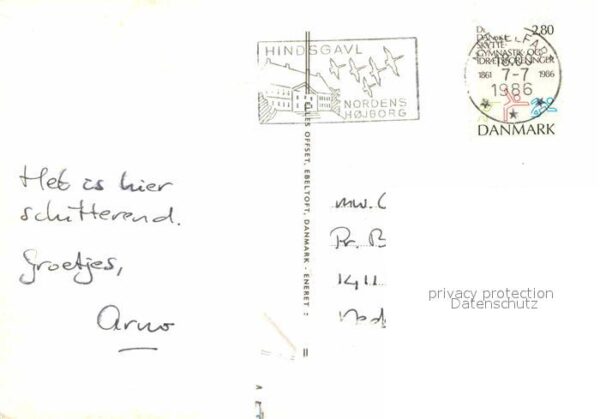 HINDSGAVL
NORDENS
HØJBORG
2.80
DANSKE
SKYTTE-
GYMNASTIK- OG
IDRÆTSFORENINGER
1861 1986
7-7
1986
DANMARK
OFFSET, EBELTOFT, DANMARK - ENERET
Het is hier
schitterend.
Groetjes,
Arno
mw. C
Pr. B
1411
privacy protection
Datenschutz